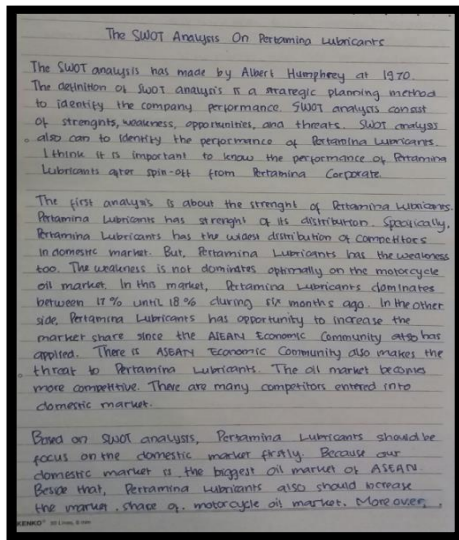 The SWOT Analysis On Pertamina Lubricants
The SWOT analysis has made by Albert Humphrey at 1970.
The definition of swot analysis is a strategic planning method
to identify the company performance. SWOT analysis consist
of strenghts, weakness, opportunities, and threats. SWOT analysis
also can to identify the performance of Pertamina Lubricants.
I think it is important to know the performance of Pertamina
Lubricants after spin-off from Pertamina Corporate.
The first analysis is about the strenght of Pertamina Lubricants.
Pertamina Lubricants has strenght of its distribution. Specifically,
Pertamina Lubricants has the widest distribution of competitors
in domestic market. But, Pertamina Lubricants has the weakness
too. The weakness is not dominates optimally on the motorcycle
oil market. In this market, Pertamina Lubricants dominates
between 17% until 18% during six months ago. In the other
side, Pertamina Lubricants has opportunity to increase the
market share since the ASEAN Economic Community has
applied. There is ASEAN Economic Community also makes the
threat to Pertamina Lubricants. The oil market becomes
more competitive. There are many competitors entered into
domestic market.
Based on SWOT analysis, Pertamina Lubricants should be
focus on the domestic market firstly. Because our
domestic market is the biggest oil market of ASEAN.
Beside that, Pertamina Lubricants also should increase
the market share of motorcycle oil market. Moreover,
KENKO